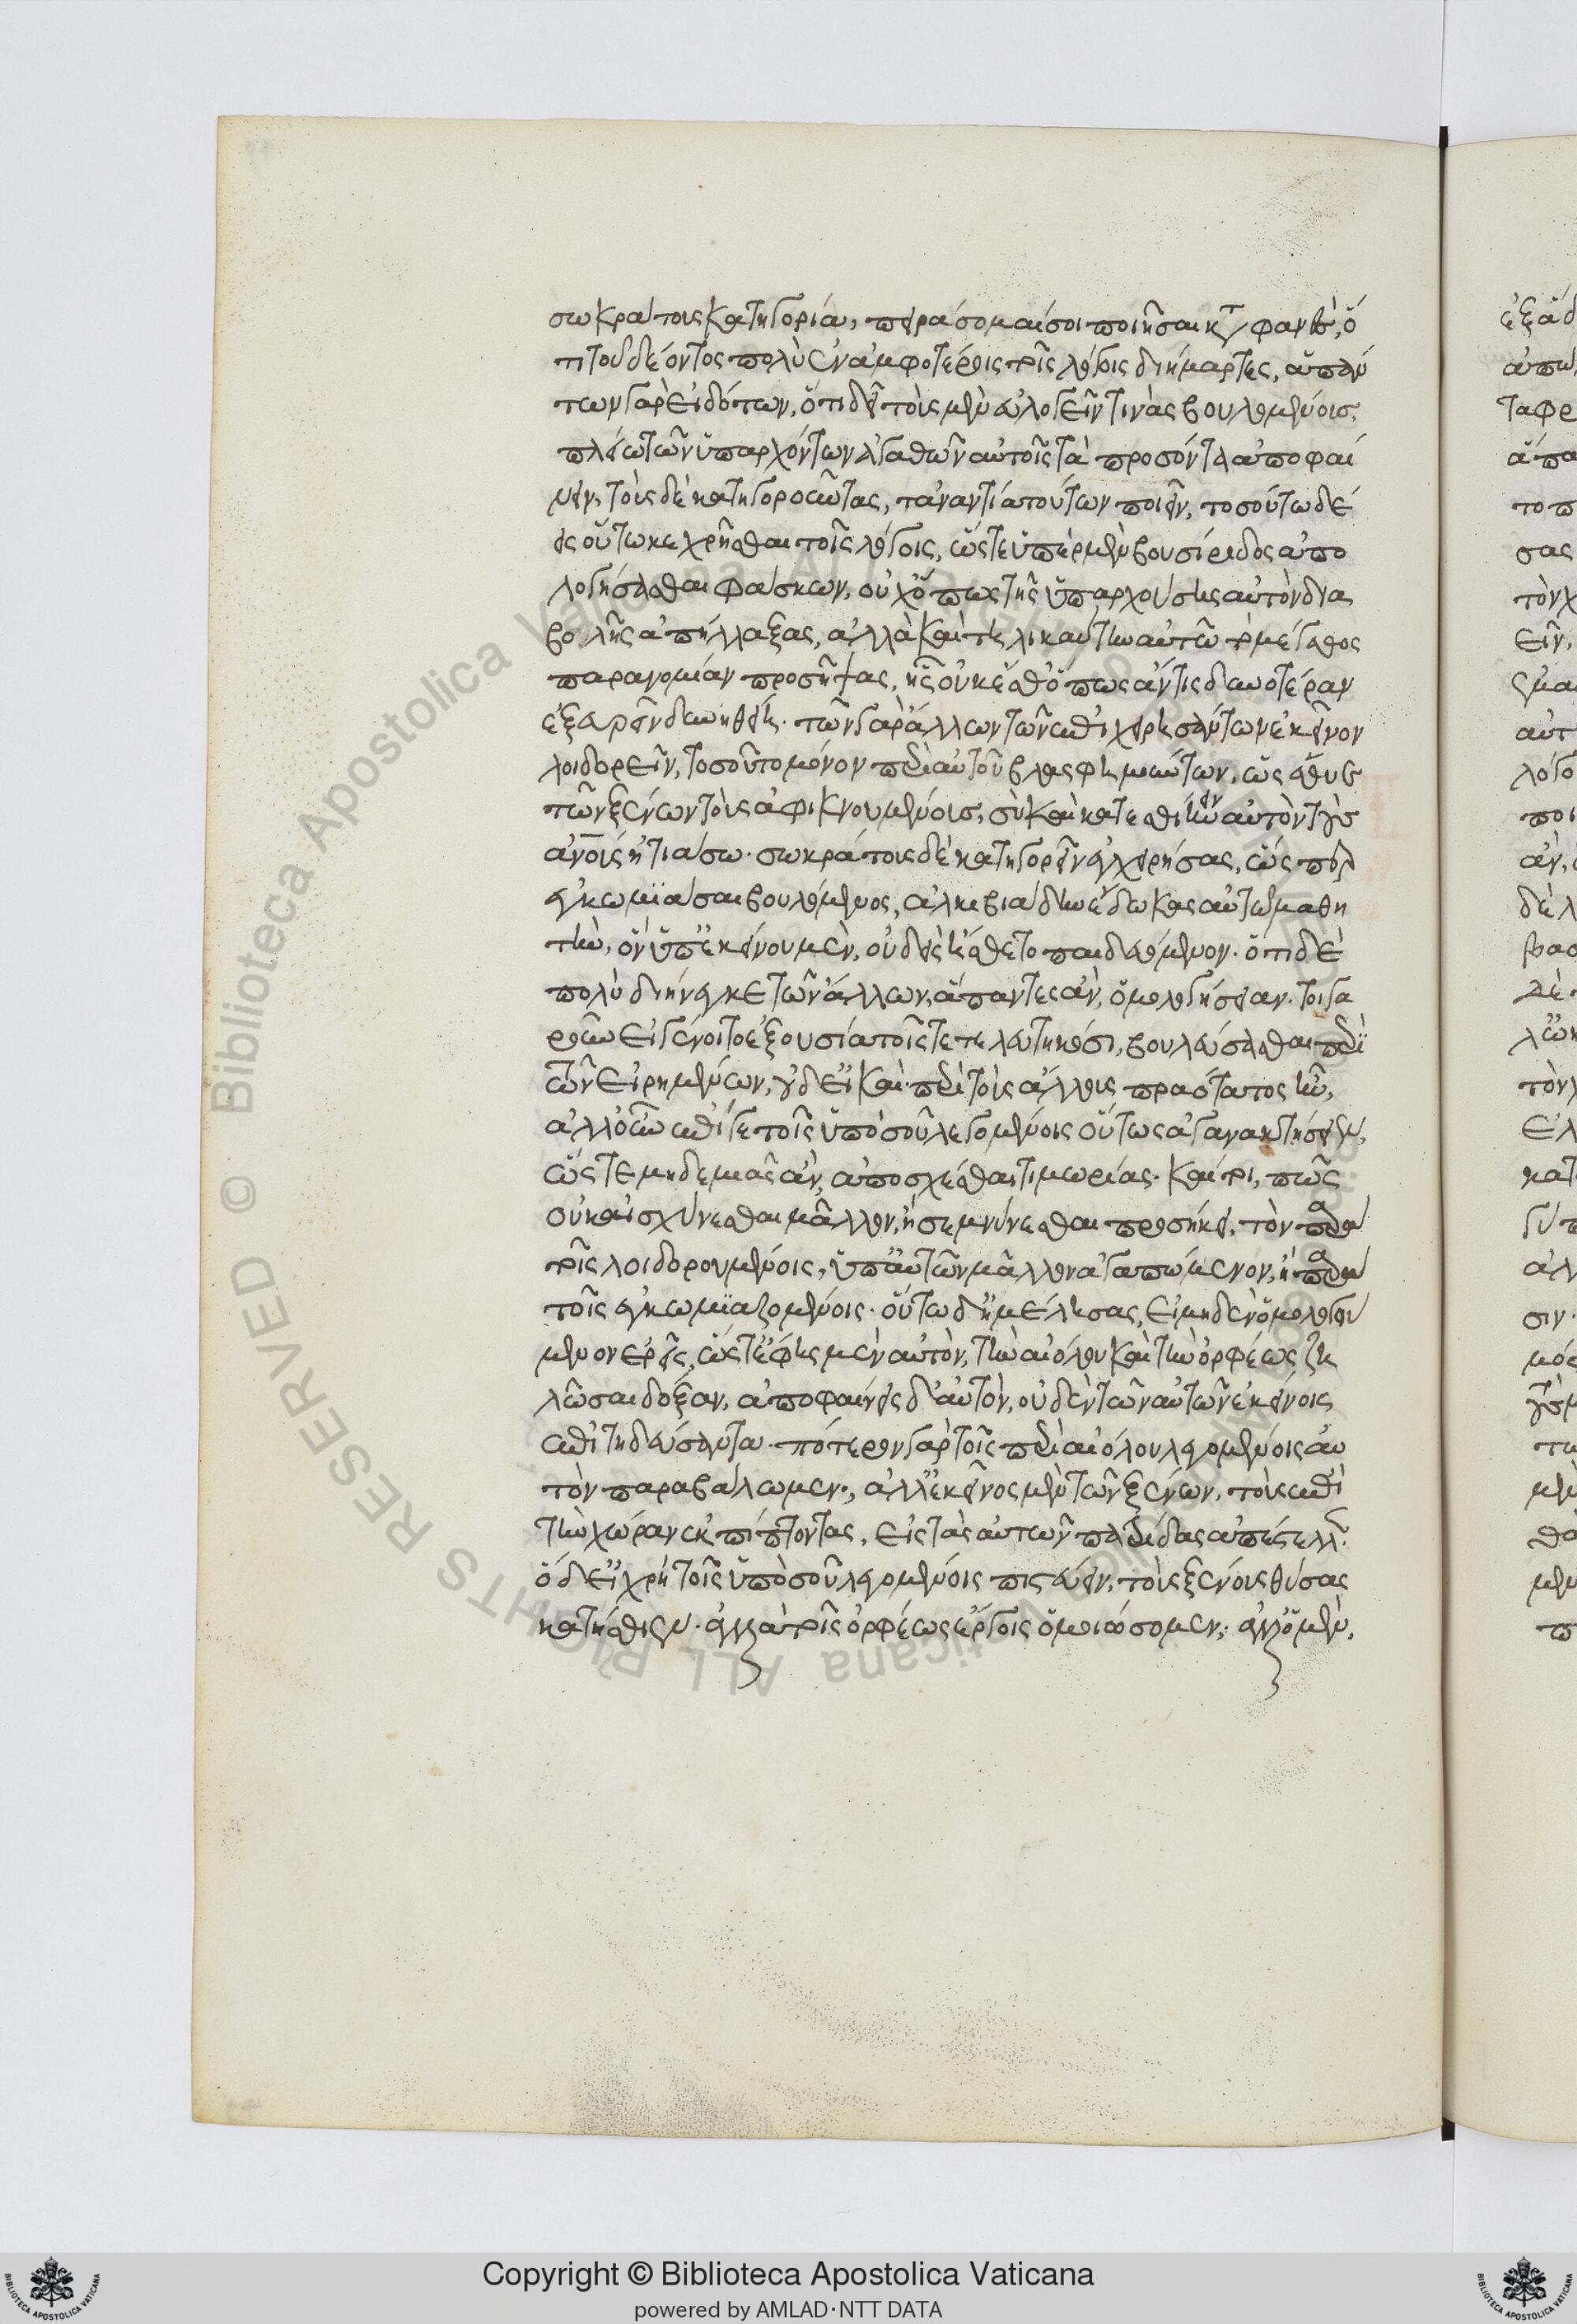 σωκράτους κατηγορίαν, πειράσομαί σοι ποιῆσαι καταφανές, ὅ
τι τοῦ δέοντος πολὺ ἐν ἀμφοτέροις τοῖς λόγοις διήμαρτες, ἁπάν
των γὰρ εἰδότων, ὅτι δεῖ τοὺς μὲν εὐλογεῖν τινὰς βουλομένους,
πλείω τῶν ὑπαρχόντων ἀγαθῶν αὐτοῖς τὰ προσόντα ἀποφαί
νειν, τοὺς δὲ κατηγοροῦντας, τἀναντία τούτων ποιεῖν, τοσούτω δέ
εις οὕτω κεχρῆσθαι τοῖς λόγοις, ὥστε ὑπὲρ μὲν βουσίριδος ἀπο
λογήσασθαι φάσκων, οὐχ ὅπως τῆς ὑπαρχούσης αὐτὸν δια
βολῆς ἀπήλλαξας, ἀλλὰ καὶ τηλικαύτην αὐτῶ τὸ μέγεθος
παρανομίαν προσῆψας, ἧς οὐκ ἔσθ' ὅπως ἄν τις δεινοτέραν
ἐξευρεῖν δυνηθείη. τῶν γὰρ ἄλλων τῶν ἐπιχειρησάντων ἐκεῖνον
λοιδορεῖν, τοσοῦτο μόνον περὶ αὐτοῦ βλασφημούντων, ὡς ἔθυε
τῶν ξένων τοὺς ἀφικνουμένους, σὺ καὶ κατεσθίειν αὐτὸν τοὺς
ἀνους ἠτιάσω. σωκράτους δὲ κατηγορεῖν ἐπιχειρήσας, ὥσπερ
ἐγκωμιάσαι βουλόμενος, ἀλκιβιάδην ἔδωκας αὐτῶ μαθη
τὴν, ὃν ὑπ' ἐκείνου μὲν, οὐδεὶς ἤσθετο παιδευόμενον. ὅτι δὲ
πολὺ διήνεγκε τῶν ἄλλων, ἅπαντες ἂν, ὁμολογήσειαν. τοιγα
ροῦν εἰ γένοιτο ἐξουσία τοῖς τετελευτηκόσι, βουλεύσασθαι περὶ
τῶν εἰρημένων, ὁ δ' εἰ καὶ περὶ τοὺς ἄλλους πραότατος ἦν,
ἀλλ' οὖν ἐπί γε τοῖς ὑπὸ σοῦ λεγομένοις οὕτως ἀγανακτήσειεν,
ὥστε μηδεμιᾶς ἂν, ἀποσχέσθαι τιμωρίας. καίτοι, πῶς
οὐκ αἰσχύνεσθαι μᾶλλον, ἢ σεμνύνεσθαι προσήκει, τὸν παρὰ
τοῖς λοιδορουμένοις, ὑπ' αὐτῶν μᾶλλον ἀγαπώμενον, ἢ παρὰ
τοῖς ἐγκωμιαζομένοις. οὕτω δ' ἠμέλησας, εἰ μηδὲν ὁμολογού
μενον ἐρεῖς, ὥστ' ἔφης μὲν αὐτὸν, τὴν αἰόλου καὶ τὴν ὀρφέως ζη
λῶσαι δόξαν, ἀποφαίνεις δ' αὐτὸν, οὐδὲν τῶν αὐτῶν ἐκείνοις
ἐπιτηδεύσαντα. πότερον γὰρ τοῖς περὶ αἰόλου λεγομένοις αὐ
τὸν παραβάλωμεν., ἀλλ' ἐκεῖνος μὲν τῶν ξένων, τοὺς ἐπὶ
τὴν χώραν ἐκπίπτοντας, εἰς τὰς αὐτῶν πατρίδας ἀπέστελλε.
ὁ δ' εἰ χρὴ τοῖς ὑπὸ σοῦ λεγομένοις πιστεύειν, τοὺς ξένους θύσας
κατήσθιεν. ἀλλὰ τοῖς ὀρφέως ἔργοις ὁμοιώσομεν;. ἀλλ' ὁ μὲν,